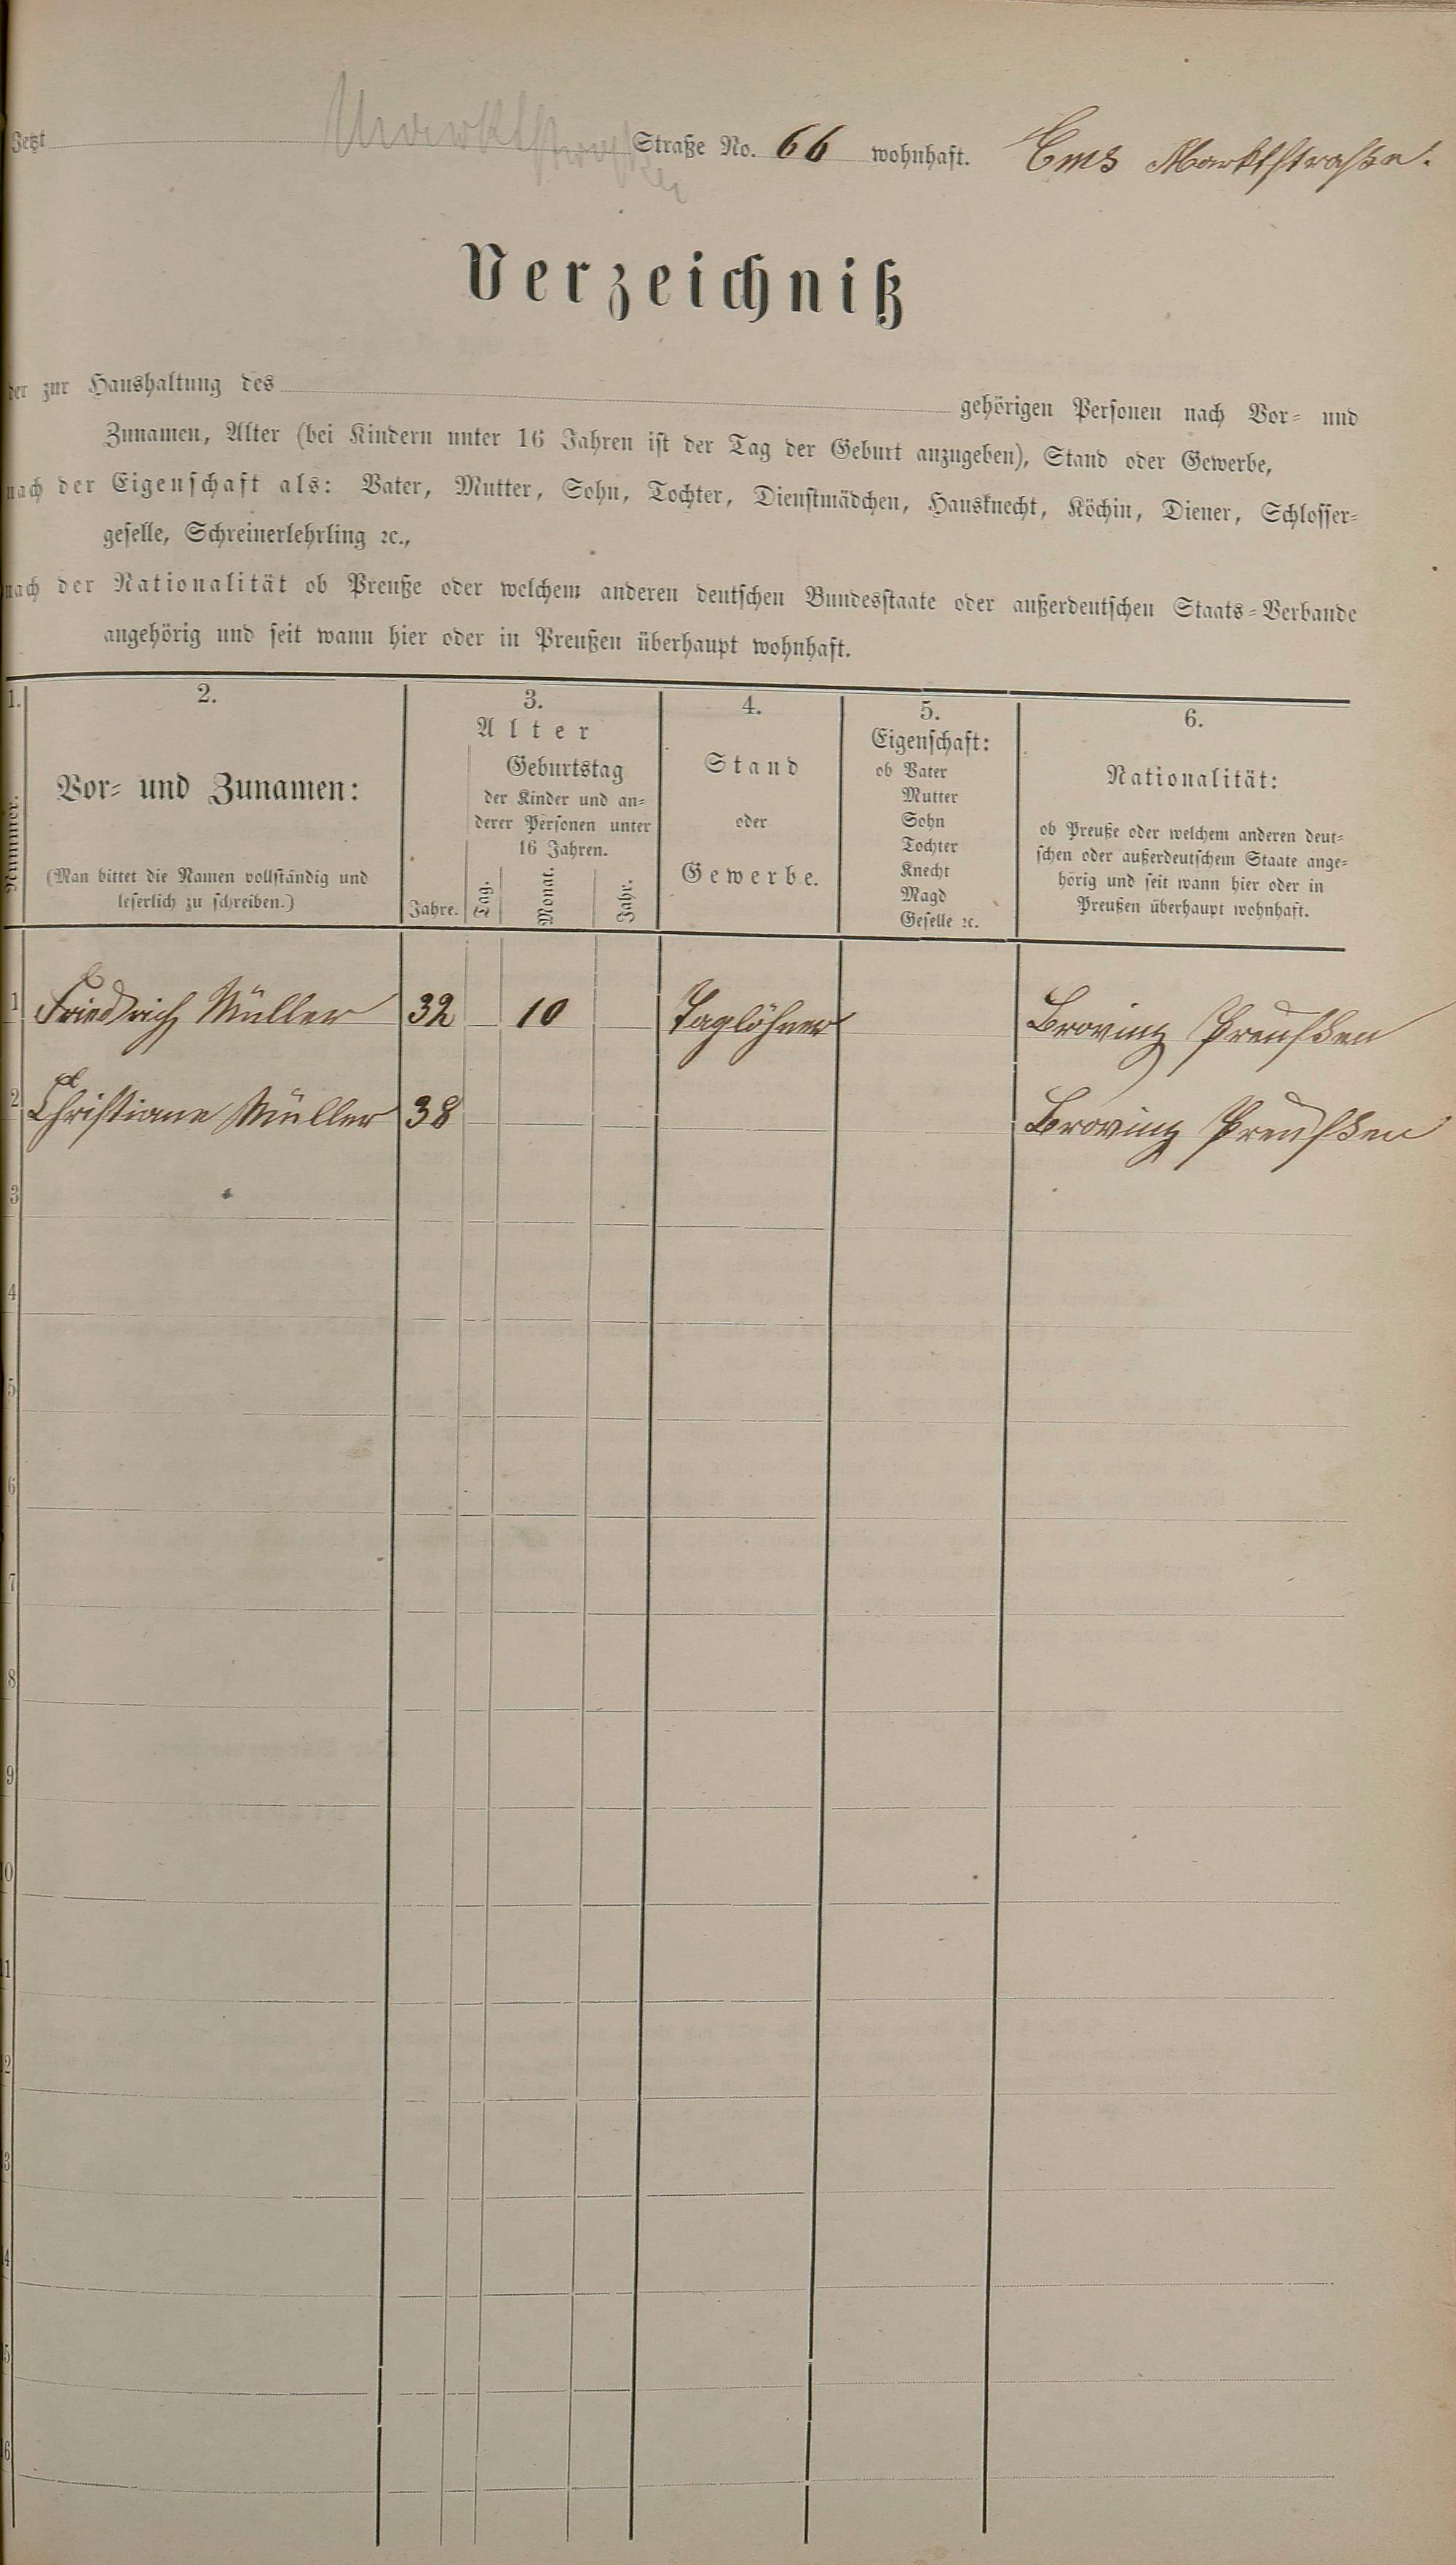 Jetzt Marktstraße Straße No. 66 wohnhaft. Ems Marktstraße.
Verzeichniß
der zur Haushaltung des gehörigen Personen nach Vor- und
Zunamen, Alter (bei Kindern unter 16 Jahren ist der Tag der Geburt anzugeben), Stand oder Gewerbe,
nach der Eigenschaft als: Vater, Mutter, Sohn, Tochter, Dienstmädchen, Hausknecht, Köchin, Diener, Schlosser-
geselle, Schreinerlehrling ꝛc.,
nach der Nationalität ob Preuße oder welchem anderen deutschen Bundesstaate oder außerdeutschen Staats-Verbande
angehörig und seit wann hier oder in Preußen überhaupt wohnhaft.
1.
Nummer.
2.
Vor- und Zunamen:
(Man bittet die Namen vollständig und
leserlich zu schreiben.)
3.
Alter
Geburtstag
der Kinder und an-
derer Personen unter
16 Jahren.
Jahre. Tag. Monat. Jahr.
4.
Stand
oder
Gewerbe.
5.
Eigenschaft:
ob Vater
Mutter
Sohn
Tochter
Knecht
Magd
Geselle ꝛc.
6.
Nationalität:
ob Preuße oder welchem anderen deut-
schen oder außerdeutschem Staate ange-
hörig und seit wann hier oder in
Preußen überhaupt wohnhaft.
1 Friedrich Müller 32 10 Taglöhner Brovinz Preußen
2 Christiane Müller 38 Brovinz Preußen
3
4
5
6
7
8
9
0
1
2
3
4
5
6